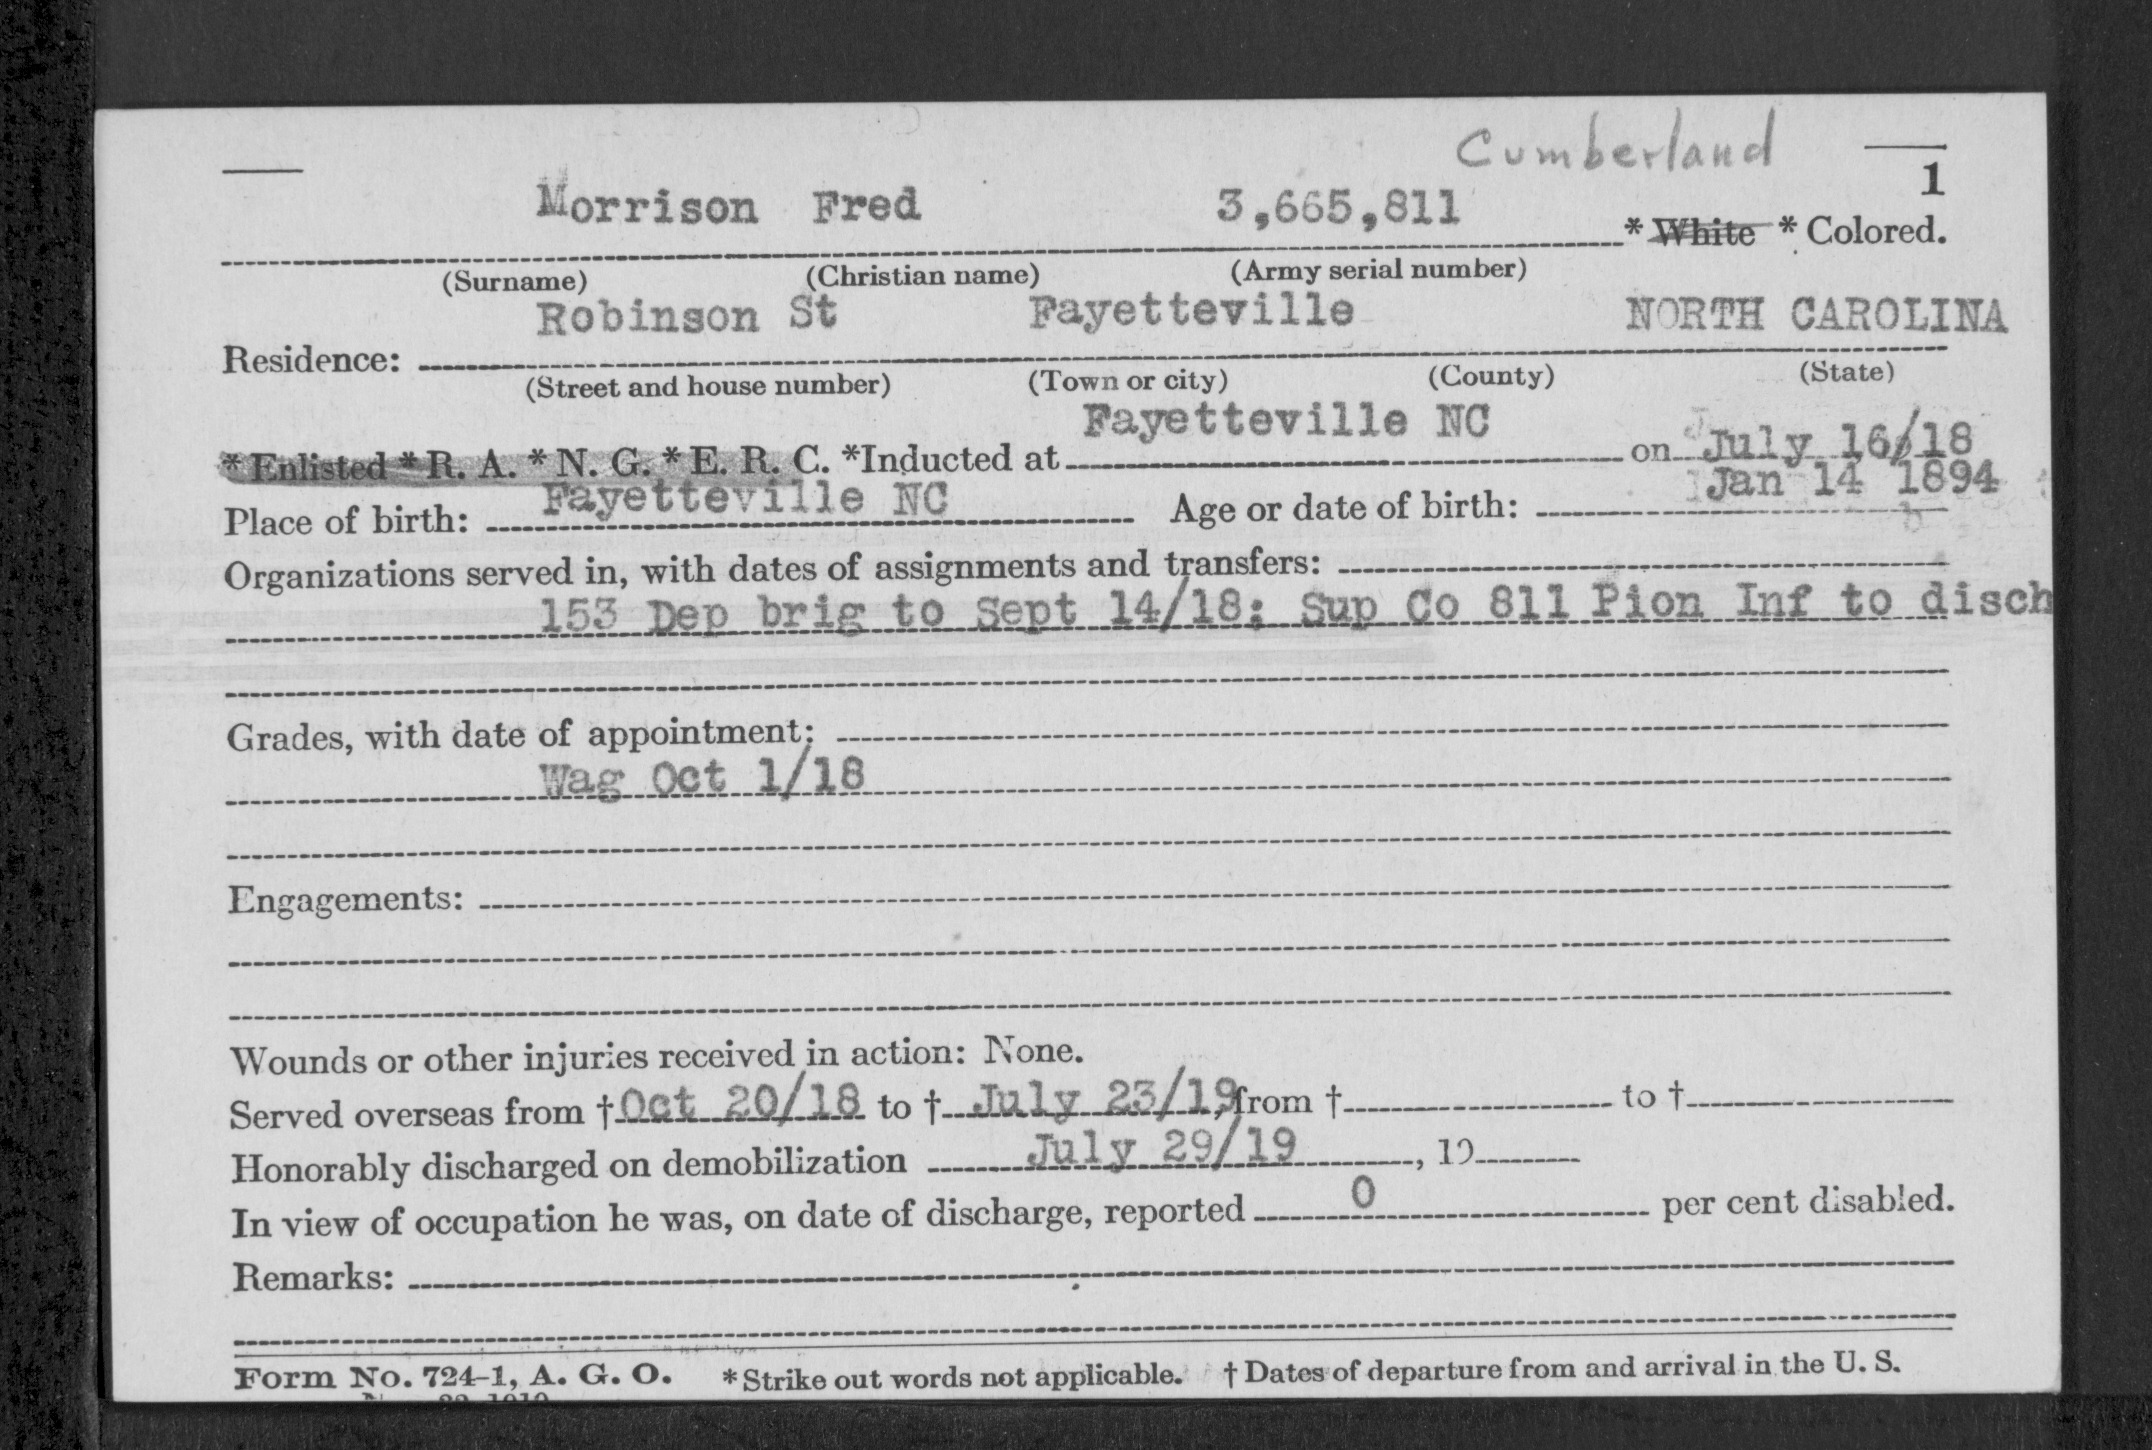 Cumberland
1
Morrison Fred 3,665,811 * White * Colored.
(Surname) (Christian name) (Army serial number)
Robinson St Fayetteville NORTH CAROLINA
Residence:
(Street and house number) (Town or city) (County) (State)
Fayetteville NC
* Enlisted * R. A. * N. G. * E. R. C. *Inducted at on July 16/18
Place of birth: Fayetteville NC Age or date of birth: Jan 14 1894
Organizations served in, with dates of assignments and transfers:
153 Dep brig to Sept 14/18; Sup Co 811 Pion Inf to disch
Grades, with date of appointment:
Wag Oct 1/18
Engagements:
Wounds or other injuries received in action: None.
Served overseas from † Oct 20/18 to † July 23/19, from † to †
Honorably discharged on demobilization July 29/19, 19
In view of occupation he was, on date of discharge, reported 0 per cent disabled.
Remarks:
Form No. 724-1, A. G. O. * Strike out words not applicable. † Dates of departure from and arrival in the U. S.